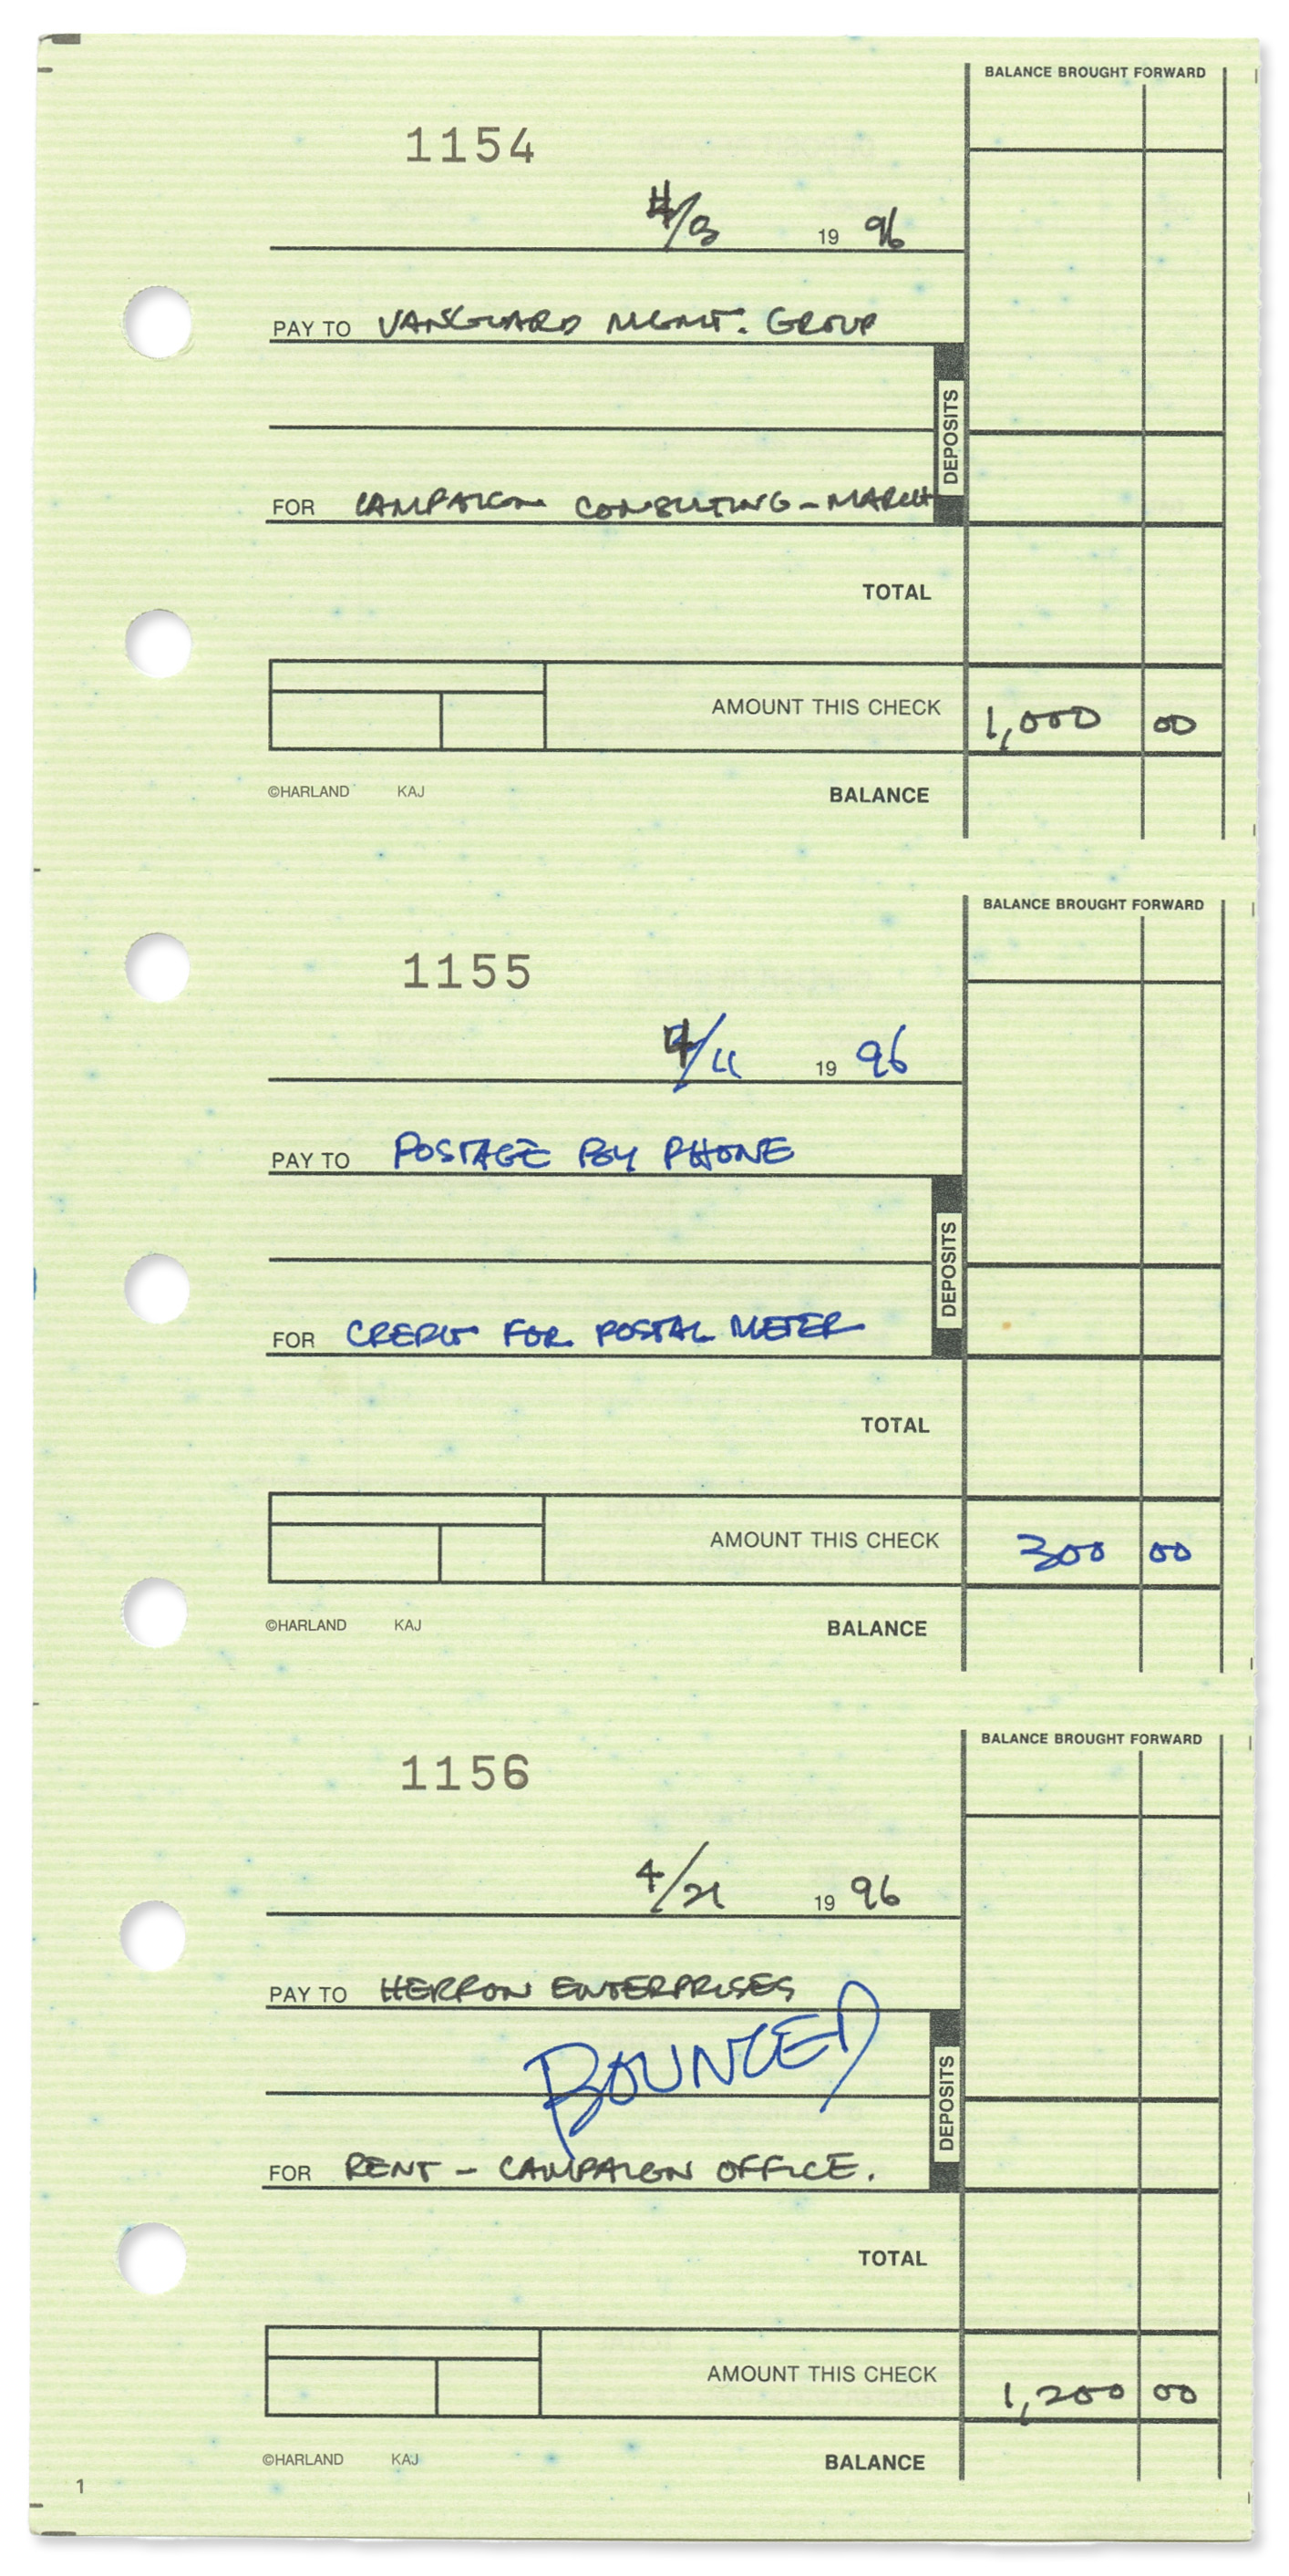 BALANCE BROUGHT FORWARD
1154
4/3 19 96
PAY TO VANGUARD MGMT. GROUP
DEPOSITS
FOR CAMPAIGN CONSULTING - MARCH
TOTAL
AMOUNT THIS CHECK 1,000 00
©HARLAND KAJ BALANCE
BALANCE BROUGHT FORWARD
1155
4/11 19 96
PAY TO POSTAGE BY PHONE
DEPOSITS
FOR CREDIT FOR POSTAL METER
TOTAL
AMOUNT THIS CHECK 300 00
©HARLAND KAJ BALANCE
BALANCE BROUGHT FORWARD
1156
4/21 19 96
PAY TO HERRON ENTERPRISES
BOUNCED
DEPOSITS
FOR RENT - CAMPAIGN OFFICE.
TOTAL
AMOUNT THIS CHECK 1,200 00
©HARLAND KAJ BALANCE
1